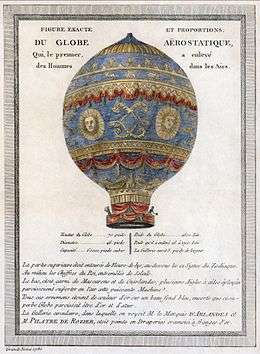 FIGURE EXACTE ET PROPORTIONS.
DU GLOBE AËROSTATIQUE,
Qui, le premier, a enlevé
des Hommes dans les Airs.
Hauteur du Globe 70 pieds
Diametre 46 pieds
Capacité pieds cubes
Poids du Globe
Poids qu'il a enlevé
La Gallerie avoit 3 pieds de largeur
La partie superieure étoit entourée de Fleurs-de-lys; au-dessous les 12 Signes du Zodiaque.
Au milieu les Chiffres du Roi, entremêlés de Soleils.
Le bas, étoit garni de Mascarons et de Guirlandes; plusieurs Aigles à ailes éployées
paroissoient supporter en l'air cette puissante Machine.
Tous ces ornemens étoient de couleur d'or sur un beau fond bleu, ensorte que ce su-
perbe Globe paroissoit être d'or et d'azur.
La Gallerie circulaire, dans laquelle on voyoit M. le Marquis D'ARLANDES et
M. PILATRE DE ROZIER, étoit peinte en Draperies cramoisies à franges d'or.
1786